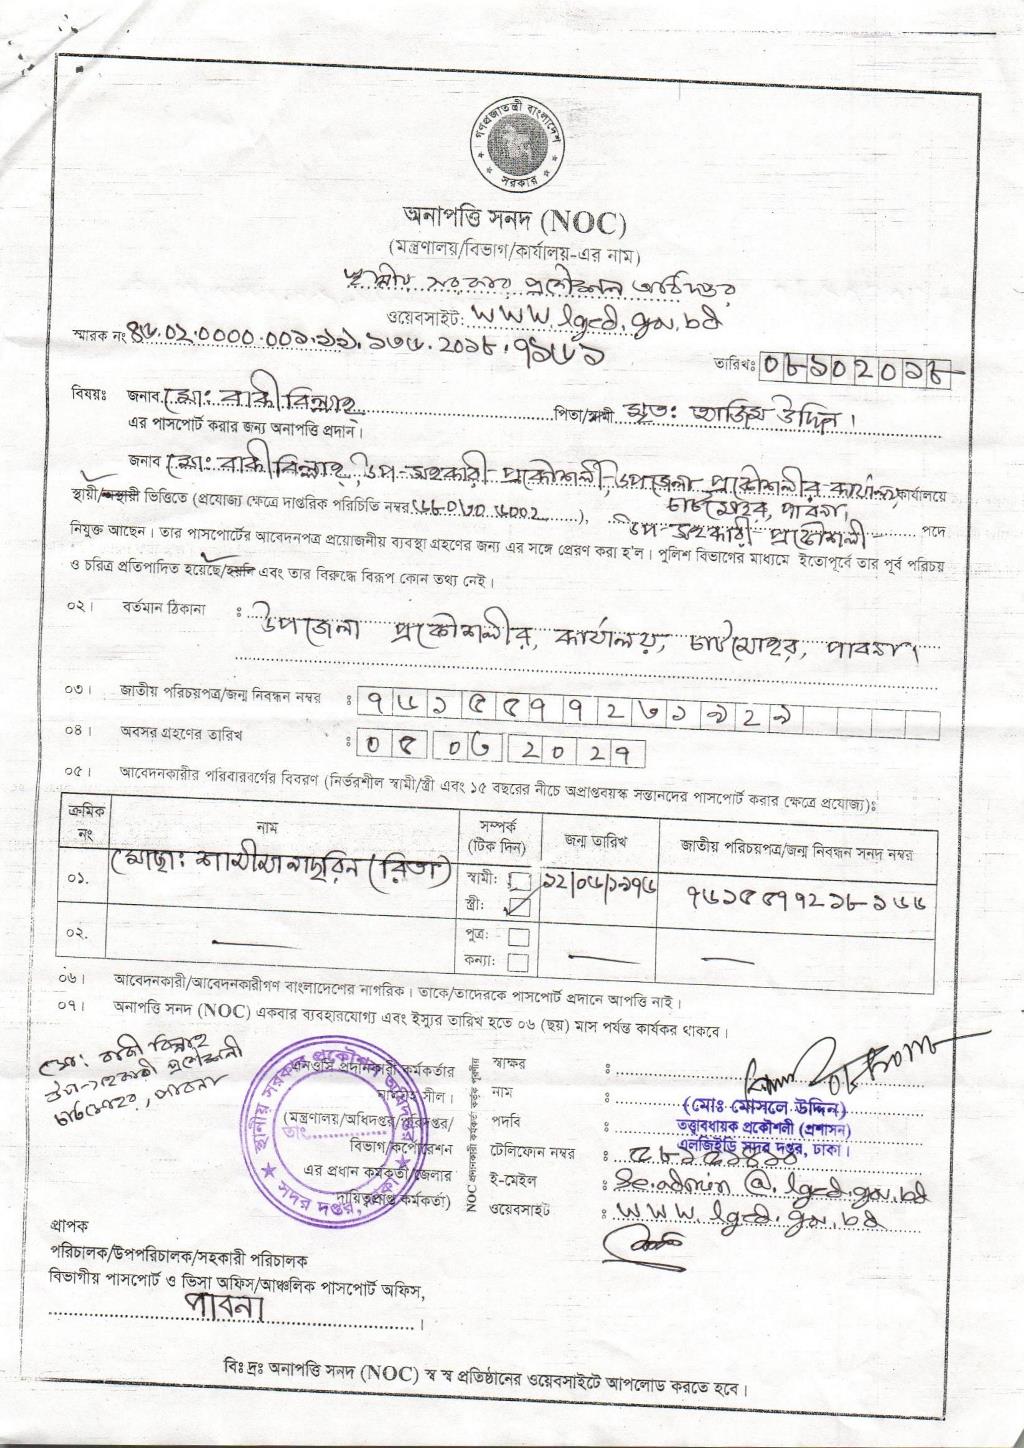 গণপ্রজাতন্ত্রী বাংলাদেশ
সরকার
অনাপত্তি সনদ (NOC)
(মন্ত্রণালয়/বিভাগ/কার্যালয়-এর নাম)
স্থানীয় সরকার প্রকৌশল অধিদপ্তর
ওয়েবসাইট: www.lged.gov.bd
স্মারক নং ৪৬.০২.০০০০.০০১.১১.১৭৬.২০১৮.৭১৬১
তারিখঃ ০৮১০২০১৮
বিষয়ঃ জনাব মোঃ বাকী বিল্লাহ্ পিতা/স্বামী মৃতঃ আজিম উদ্দিন।
এর পাসপোর্ট করার জন্য অনাপত্তি প্রদান।
জনাব মোঃ বাকী বিল্লাহ্, উপ-সহকারী প্রকৌশলী, উপজেলা প্রকৌশলীর কার্যালয়, কার্যালয়ে
চাটমোহর, পাবনা।
স্থায়ী/অস্থায়ী ভিত্তিতে (প্রযোজ্য ক্ষেত্রে দাপ্তরিক পরিচিতি নম্বর), উপ-সহকারী প্রকৌশলী পদে
নিযুক্ত আছেন। তার পাসপোর্টের আবেদনপত্র প্রয়োজনীয় ব্যবস্থা গ্রহণের জন্য এর সঙ্গে প্রেরণ করা হ'ল। পুলিশ বিভাগের মাধ্যমে ইতোপূর্বে তার পূর্ব পরিচয়
ও চরিত্র প্রতিপাদিত হয়েছে/হয়নি এবং তার বিরুদ্ধে বিরূপ কোন তথ্য নেই।
০২। বর্তমান ঠিকানা : উপজেলা প্রকৌশলীর, কার্যালয়, চাটমোহর, পাবনা।
০৩। জাতীয় পরিচয়পত্র/জন্ম নিবন্ধন নম্বর : ৭৬১৫৫৭৭২৬১৯২৯
০৪। অবসর গ্রহণের তারিখ : ০৫ ০৬ ২০২৭
০৫। আবেদনকারীর পরিবারবর্গের বিবরণ (নির্ভরশীল স্বামী/স্ত্রী এবং ১৫ বছরের নীচে অপ্রাপ্তবয়স্ক সন্তানদের পাসপোর্ট করার ক্ষেত্রে প্রযোজ্য)ঃ
ক্রমিক নং নাম সম্পর্ক (টিক দিন) জন্ম তারিখ জাতীয় পরিচয়পত্র/জন্ম নিবন্ধন সনদ নম্বর
০১. মোছাঃ শামীমা নাছরিন (রিতা) স্বামী: স্ত্রী: ১২/০৬/১৯৭৬ ৭৬১৫৫৭৭২১৮১৬৬
০২. পুত্র: কন্যা:
০৬। আবেদনকারী/আবেদনকারীগণ বাংলাদেশের নাগরিক। তাকে/তাদেরকে পাসপোর্ট প্রদানে আপত্তি নাই।
০৭। অনাপত্তি সনদ (NOC) একবার ব্যবহারযোগ্য এবং ইস্যুর তারিখ হতে ০৬ (ছয়) মাস পর্যন্ত কার্যকর থাকবে।
মোঃ বাকী বিল্লাহ
উপ-সহকারী প্রকৌশলী
চাটমোহর, পাবনা
স্থানীয় সরকার প্রকৌশল অধিদপ্তর
সদর দপ্তর, ঢাকা
তাং
এনওসি প্রদানকারী কর্মকর্তার
নামীয় সীল।
(মন্ত্রণালয়/অধিদপ্তর/পরিদপ্তর/
বিভাগ/কর্পোরেশন
এর প্রধান কর্মকর্তা/জেলার
দায়িত্বপ্রাপ্ত কর্মকর্তা)
NOC প্রদানকারী কর্মকর্তা কর্তৃক পূরণীয়
স্বাক্ষর :
নাম : (মোঃ মোসলে উদ্দিন)
পদবি : তত্ত্বাবধায়ক প্রকৌশলী (প্রশাসন)
এলজিইডি সদর দপ্তর, ঢাকা।
টেলিফোন নম্বর :
ই-মেইল : se.admin@lged.gov.bd
ওয়েবসাইট : www.lged.gov.bd
প্রাপক
পরিচালক/উপপরিচালক/সহকারী পরিচালক
বিভাগীয় পাসপোর্ট ও ভিসা অফিস/আঞ্চলিক পাসপোর্ট অফিস,
পাবনা।
বিঃ দ্রঃ অনাপত্তি সনদ (NOC) স্ব স্ব প্রতিষ্ঠানের ওয়েবসাইটে আপলোড করতে হবে।